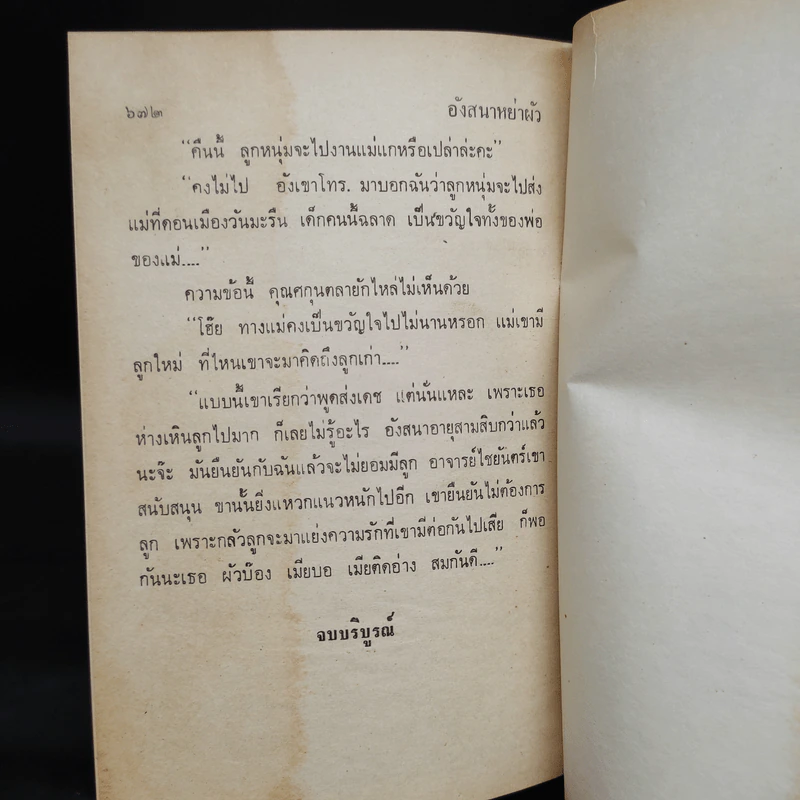 ๖๗๒
อังสนาหย่าผัว
"คืนนี้ ลูกหนุ่มจะไปงานแม่แกหรือเปล่าล่ะคะ"
"คงไม่ไป อังเขาโทร. มาบอกฉันว่าลูกหนุ่มจะไปส่ง
แม่ที่ดอนเมืองวันมะรืน เด็กคนนี้ฉลาด เป็นขวัญใจทั้งของพ่อ
ของแม่...."
ความข้อนี้ คุณศกุนตลายักไหล่ไม่เห็นด้วย
"โฮ๊ย ทางแม่คงเป็นขวัญใจไปไม่นานหรอก แม่เขามี
ลูกใหม่ ที่ไหนเขาจะมาคิดถึงลูกเก่า...."
"แบบนี้เขาเรียกว่าพูดส่งเดช แต่นั่นแหละ เพราะเธอ
ห่างเหินลูกไปมาก ก็เลยไม่รู้อะไร อังสนาอายุสามสิบกว่าแล้ว
นะจ๊ะ มันยืนยันกับฉันแล้วจะไม่ยอมมีลูก อาจารย์ไชยันตร์เขา
สนับสนุน ขานั้นยิ่งแหวกแนวหนักไปอีก เขายืนยันไม่ต้องการ
ลูก เพราะกลัวลูกจะมาแย่งความรักที่เขามีต่อกันไปเสีย ก็พอ
กันนะเธอ ผัวบ๊อง เมียบอ เมียติดอ่าง สมกันดี...."
จบบริบูรณ์